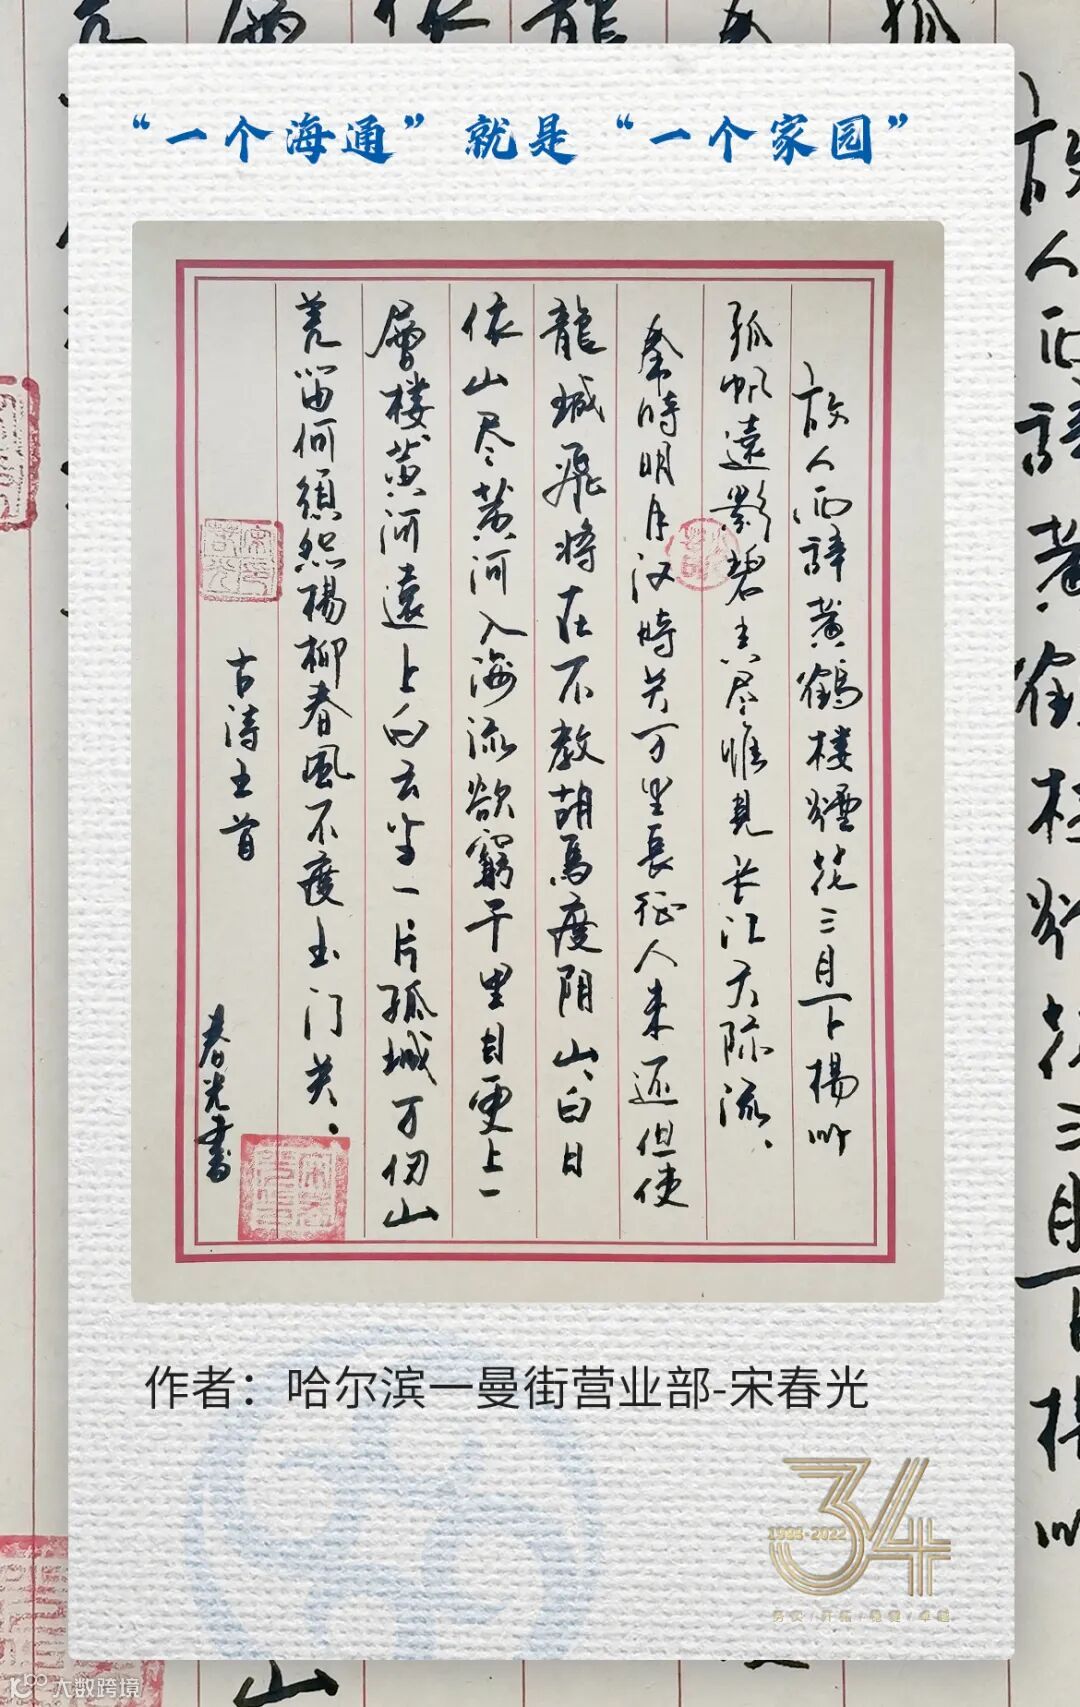 “一个海通”就是“一个家园”
故人西辭黄鶴楼煙花三月下楊州
孤帆遠影碧空尽惟見长江天际流、
秦時明月汉時关万里長征人未还但使
龍城飛将在不教胡馬度阴山、白日
依山尽黄河入海流欲窮千里目更上一
層楼黄河遠上白云一片孤城万仞山
羌笛何須怨楊柳春風不度玉门关。
古诗五首
春光書
作者：哈尔滨一曼街营业部-宋春光
34
1988-2022
务实/开拓/稳健/卓越
大数跨境